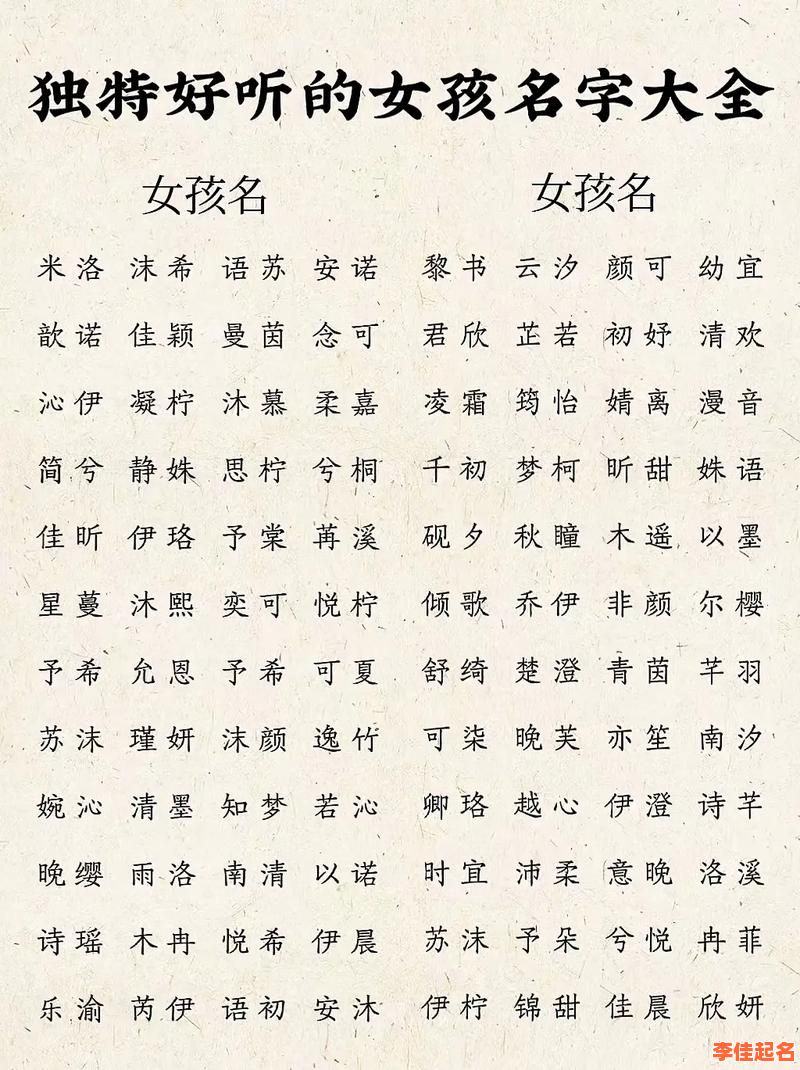 独特好听的女孩名字大全
女孩名 女孩名
米洛 沫希 语苏 安诺 黎书 云汐 颜可 幼宜
歆诺 佳颖 曼茵 念可 君欣 芷若 初妤 清欢
沁伊 凝柠 沐慕 柔嘉 凌霜 筠怡 婧离 漫音
简兮 静姝 思柠 兮桐 千初 梦柯 昕甜 姝语
佳昕 伊珞 予棠 苒溪 砚夕 秋瞳 木遥 以墨
星蔓 沐熙 奕可 悦柠 倾歌 乔伊 非颜 尔樱
予希 允恩 予希 可夏 舒绮 楚澄 青茵 芊羽
苏沫 瑾妍 沫颜 逸竹 可柒 晚芙 亦笙 南汐
婉沁 清墨 知梦 若沁 卿珞 越心 伊澄 诗芊
晚缨 雨洛 南清 以诺 时宜 沛柔 意晚 洛溪
诗瑶 木冉 悦希 伊晨 苏沫 予朵 兮悦 冉菲
乐渝 芮伊 语初 安沐 伊柠 锦甜 佳晨 欣妍
李佳起名